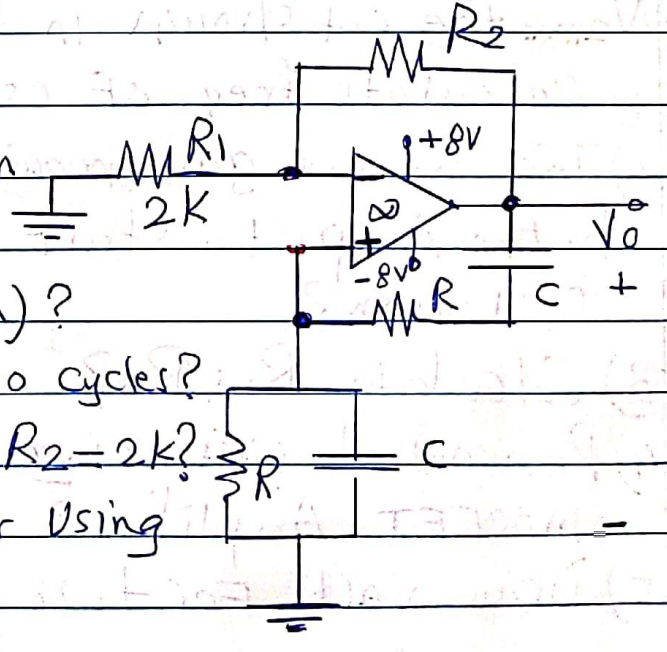 R2
R1
+8V
n
2K
−
∞
+
Vo
-8V
R
C
+
) ?
o cycles?
R2=2k?
R
C
r Using
-